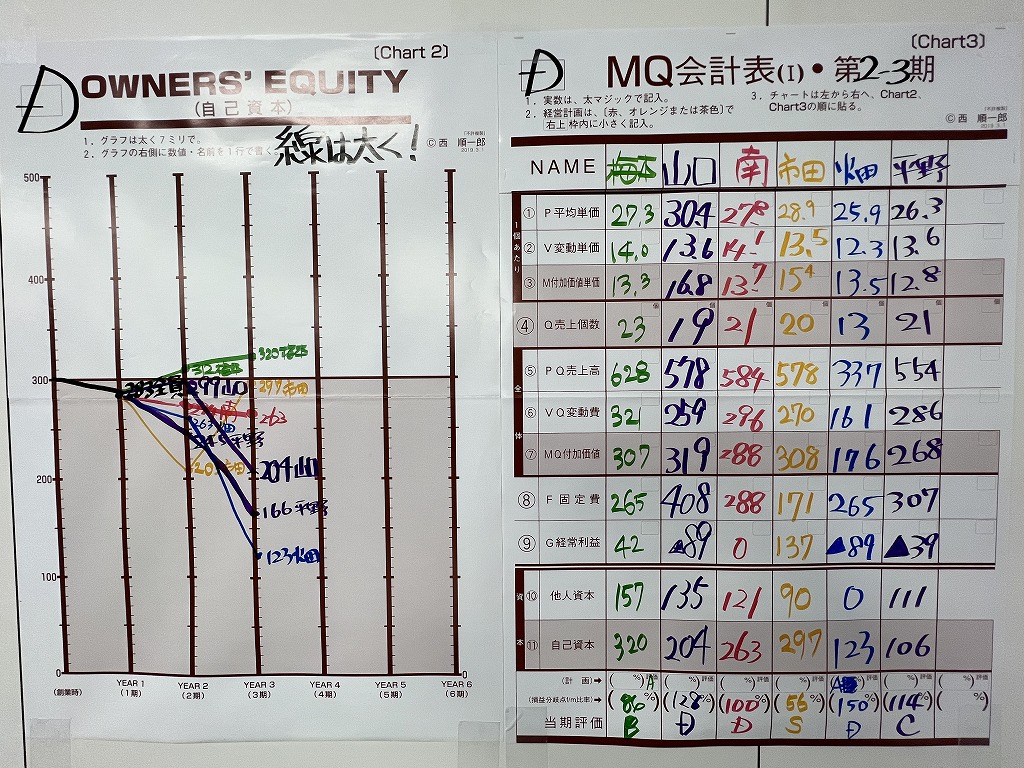 〔Chart 2〕
D OWNERS' EQUITY
(自己資本)
1．グラフは太く7ミリで。
2．グラフの右側に数値・名前を1行で書く。
線は太く!
© 西 順一郎
500
400
300
200
100
0
293全員
312梅本
299山口
263畑
201市田
320梅本
297市田
263
204山口
166平野
123畑
0
(創業時)
YEAR 1 YEAR 2 YEAR 3 YEAR 4 YEAR 5 YEAR 6
(1期) (2期) (3期) (4期) (5期) (6期)
〔Chart3〕
D MQ会計表(I)・第2-3期
1．実数は、太マジックで記入。
2．経営計画は、〔赤、オレンジまたは茶色〕で
右上 枠内に小さく記入。
3．チャートは左から右へ、Chart2、
Chart3の順に貼る。
© 西 順一郎
NAME 梅本 山口 南 市田 畑 平野
1個あたり
① P平均単価 27.3 30.4 27.8 28.9 25.9 26.3
② V変動単価 14.0 13.6 14.1 13.5 12.3 13.6
③ M付加価値単価 13.3 16.8 13.7 15.4 13.5 12.8
④ Q売上個数 23 19 21 20 13 21
全体
⑤ PQ売上高 628 578 584 578 337 554
⑥ VQ変動費 321 259 296 270 161 286
⑦ MQ付加価値 307 319 288 308 176 268
⑧ F固定費 265 408 288 171 265 307
⑨ G経常利益 42 ▲89 0 137 ▲89 ▲39
資本
⑩ 他人資本 157 135 121 90 0 111
⑪ 自己資本 320 204 263 297 123 106
(計 画)→ ( %)評価 A ( %)評価 ( %)評価 ( %)評価 ( %)評価 ( %)評価 ( %)評価
(損益分岐点f/m比率)→ (86%) (128%) (100%) (56%) (150%) (114%) ( %)
当期評価 B D D S D C